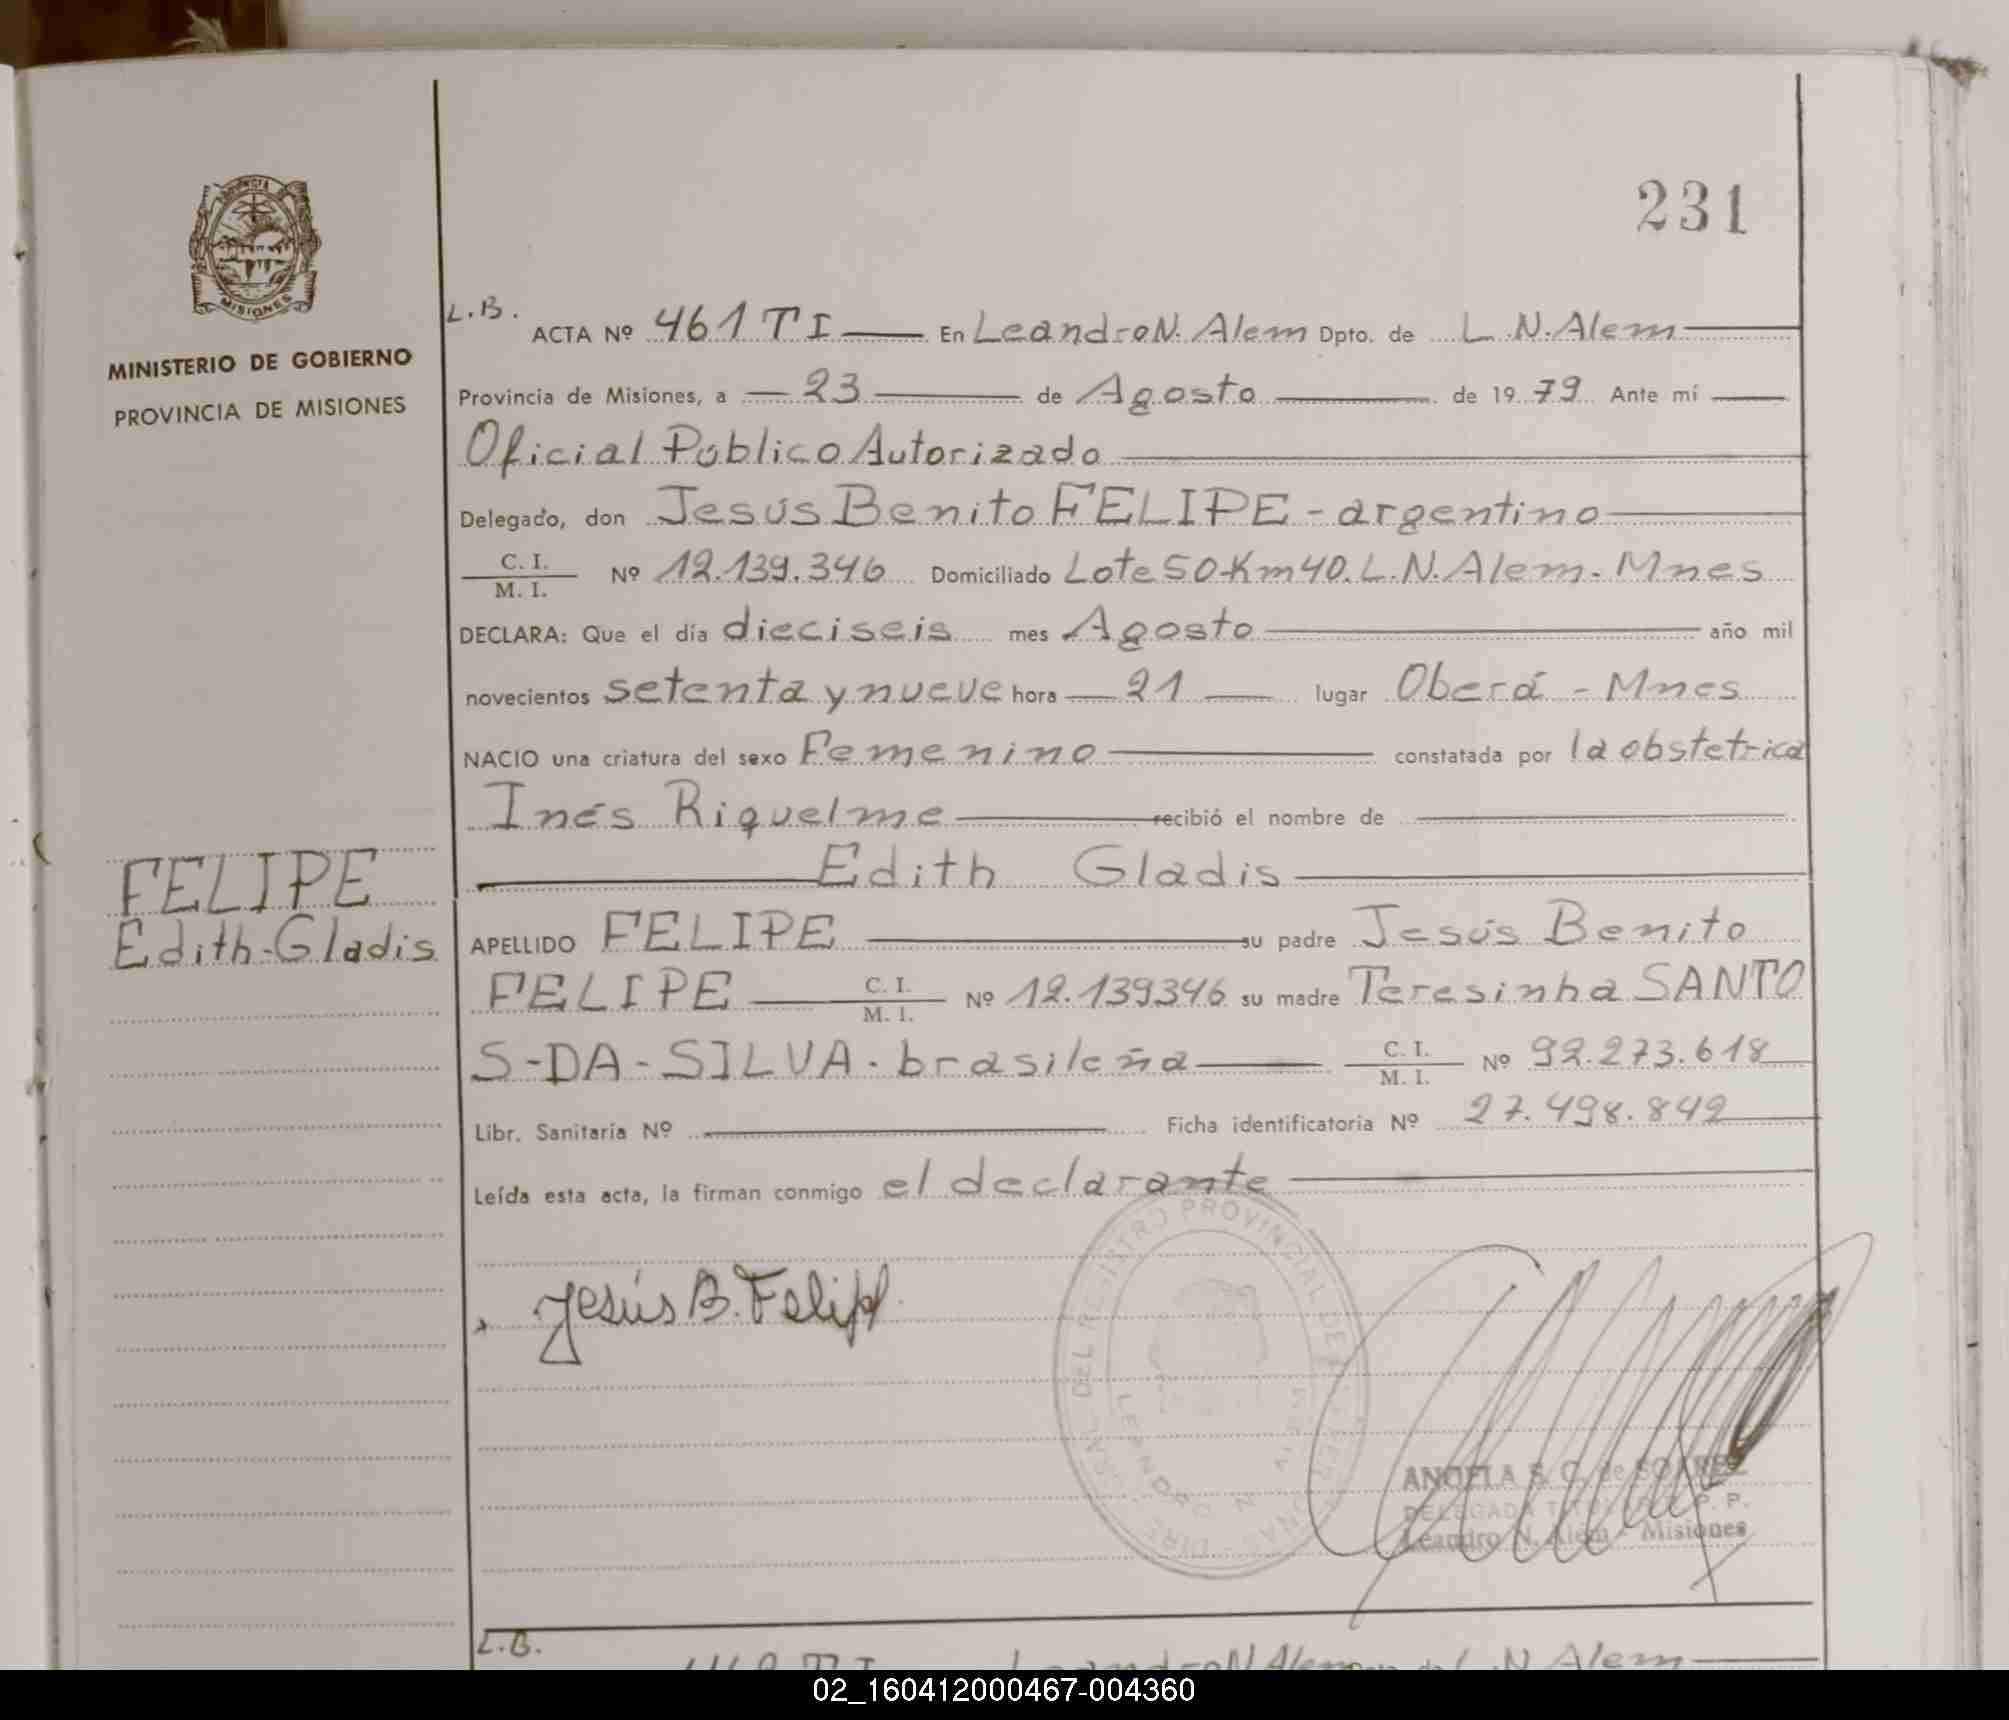 231
PROVINCIA
MISIONES
MINISTERIO DE GOBIERNO
PROVINCIA DE MISIONES
L.B.
ACTA Nº 461 T I En Leandro N. Alem Dpto. de L.N. Alem
Provincia de Misiones, a 23 de Agosto de 1979 Ante mí
Oficial Público Autorizado
Delegado, don Jesús Benito FELIPE - argentino
C. I.
M. I. Nº 12.139.346 Domiciliado Lote 50-Km 40. L.N. Alem. Mnes
DECLARA: Que el día dieciseis mes Agosto año mil
novecientos setenta y nueve hora 21 lugar Oberá - Mnes
NACIO una criatura del sexo Femenino constatada por la obstetrica
Inés Riquelme recibió el nombre de
Edith Gladis
FELIPE
Edith-Gladis
APELLIDO FELIPE su padre Jesús Benito
FELIPE C. I. M. I. Nº 12.139346 su madre Teresinha SANTO
S-DA-SILVA. brasileña C. I. M. I. Nº 92.273.618
Libr. Sanitaria Nº Ficha identificatoria Nº 27.498.842
Leída esta acta, la firman conmigo el declarante
Jesús B. Felipe
DEL REGISTRO PROVINCIAL DE
LEANDRO N. ALEM
ANGELA S. C. de
DELEGADA TITULAR P. P.
Leandro N. Alem - Misiones
L.B.
Leandro N Alem L.N Alem
02_160412000467-004360